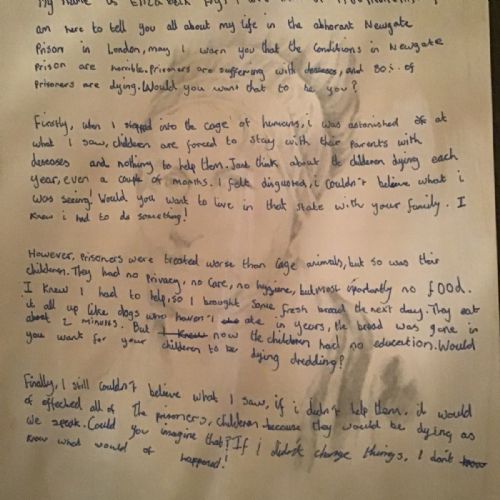 My name is Elizabeth Fry, I
am here to tell you all about my life in the abhorant Newgate
Prison in London, may I warn you that the conditions in Newgate
Prison are horrible. Prisoners are suffering with deseases, and 80% of
Prisoners are dying. Would you want that to be you?
Firstly, when I stepped into the cage of humans, i was astonished at
what I saw, children are forced to stay with their parents with
deseases and nothing to help them. Just think about the children dying each
year, even a couple of months. I felt disgusted, i couldn't believe what i
was seeing! Would you want to live in that state with your family. I
know i had to do something!
However, prisoners were treated worse than cage animals, but so was their
children. They had no privacy, no care, no hygiene, but most importantly no food.
I knew I had to help, so I brought some fresh bread the next day. They eat
it all up like dogs who haven't ate in years, the bread was gone in
about 2 minutes. But I know now the children had no education. Would
you want for your children to be dying dredding?
Finally, I still couldn't believe what I saw, if i didn't help them. it would
of effected all of the prisoners, children because they would be dying as
we speak. Could you imagine that? If i didn't change things, I don't
know what would of happened!